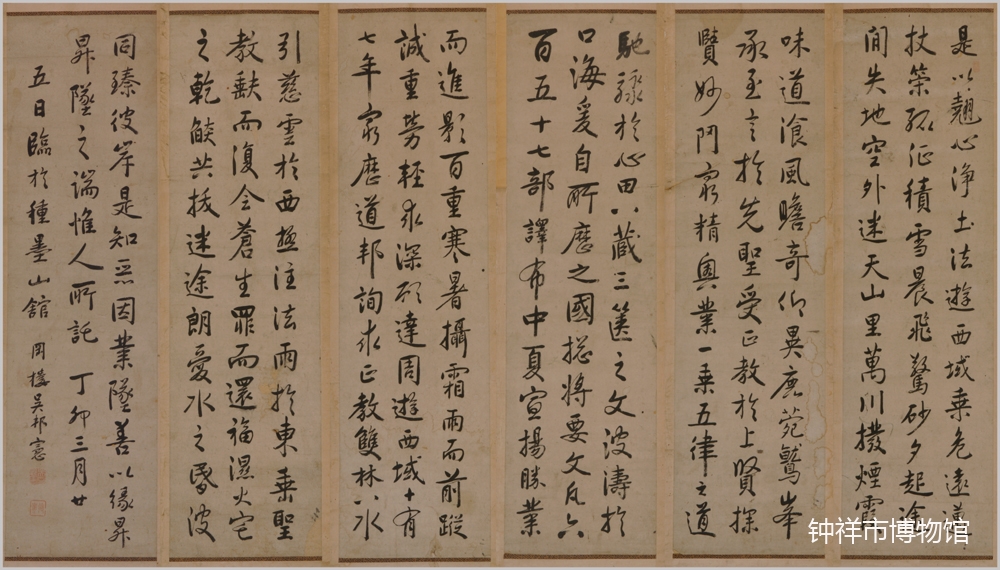 是以翹心淨土法遊西域乗危遠邁
杖策孤征積雪晨飛驚砂夕起途
間失地空外迷天山里萬川撥煙霞
味道飡風瞻奇仰異鹿菀鷲峯
承至言於先聖受正教於上賢探
賾妙門窮精奧業一乗五律之道
馳驟於心田八藏三篋之文波濤於
口海爰自所歷之國揔將要文凡六
百五十七部譯布中夏宣揚勝業
而進影百重寒暑攝霜雨而前蹤
誠重勞輕求深願達周遊西域十有
七年窮歷道邦詢求正教雙林八水
引慈雲於西極注法雨於東垂聖
教缺而復全蒼生罪而還福濕火宅
之乾燄共拔迷途朗愛水之昏波
同臻彼岸是知惡因業墜善以緣昇
昇墜之端惟人所託 丁卯三月廿
五日臨於種墨山館 吳邦憲
钟祥市博物馆